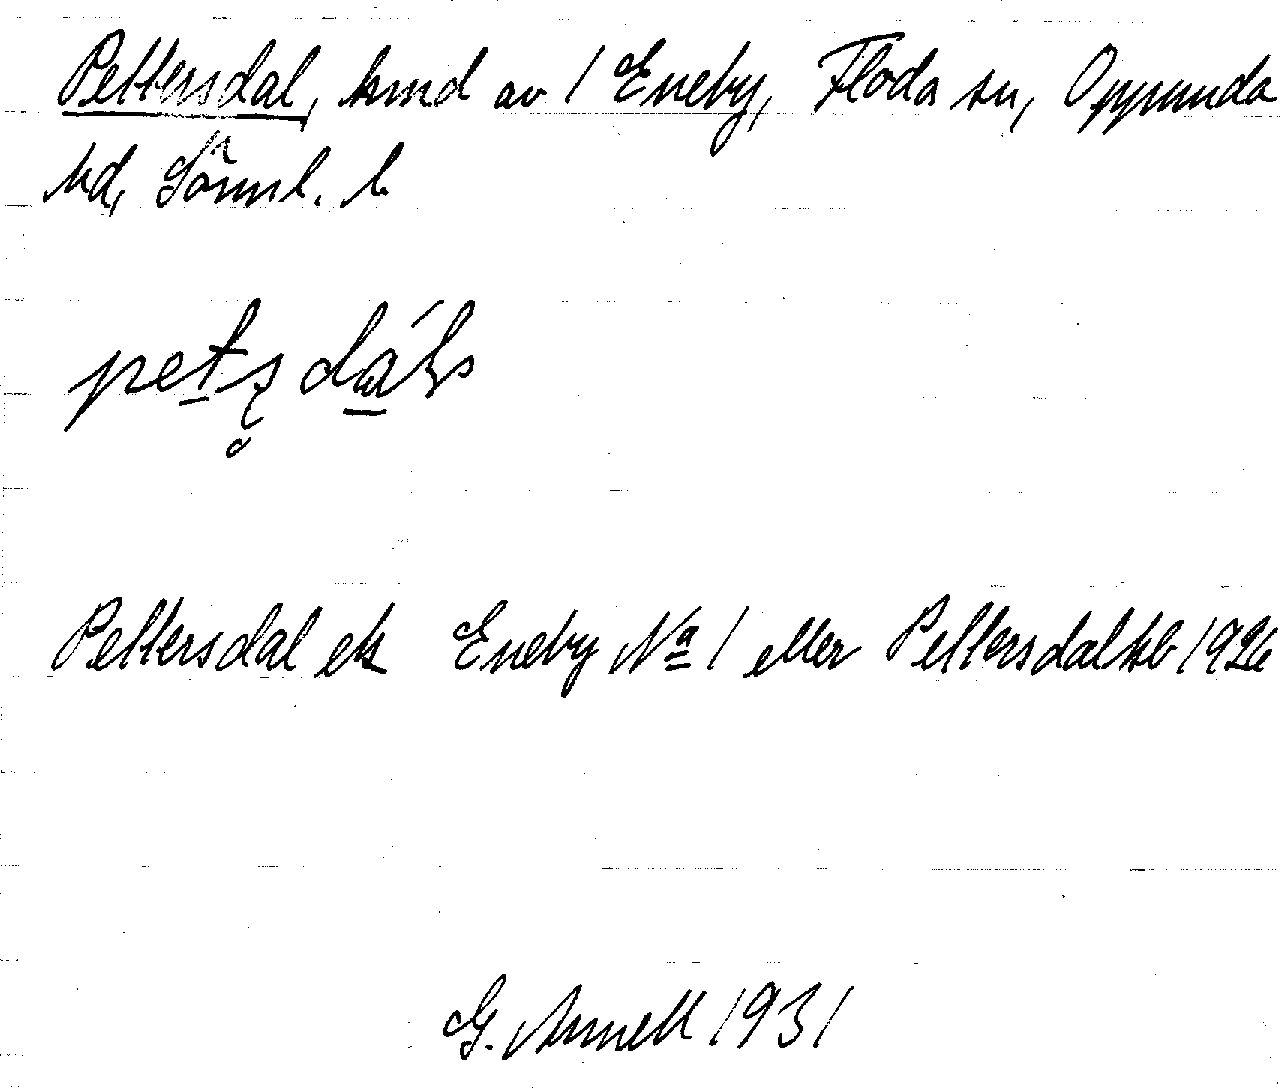 Pettersdal, hmd av 1 Eneby, Floda sn, Oppunda
hd, Södml. l.
Pettersdal ek Eneby No 1 eller Pettersdal hb 1926
G. Annell 1931